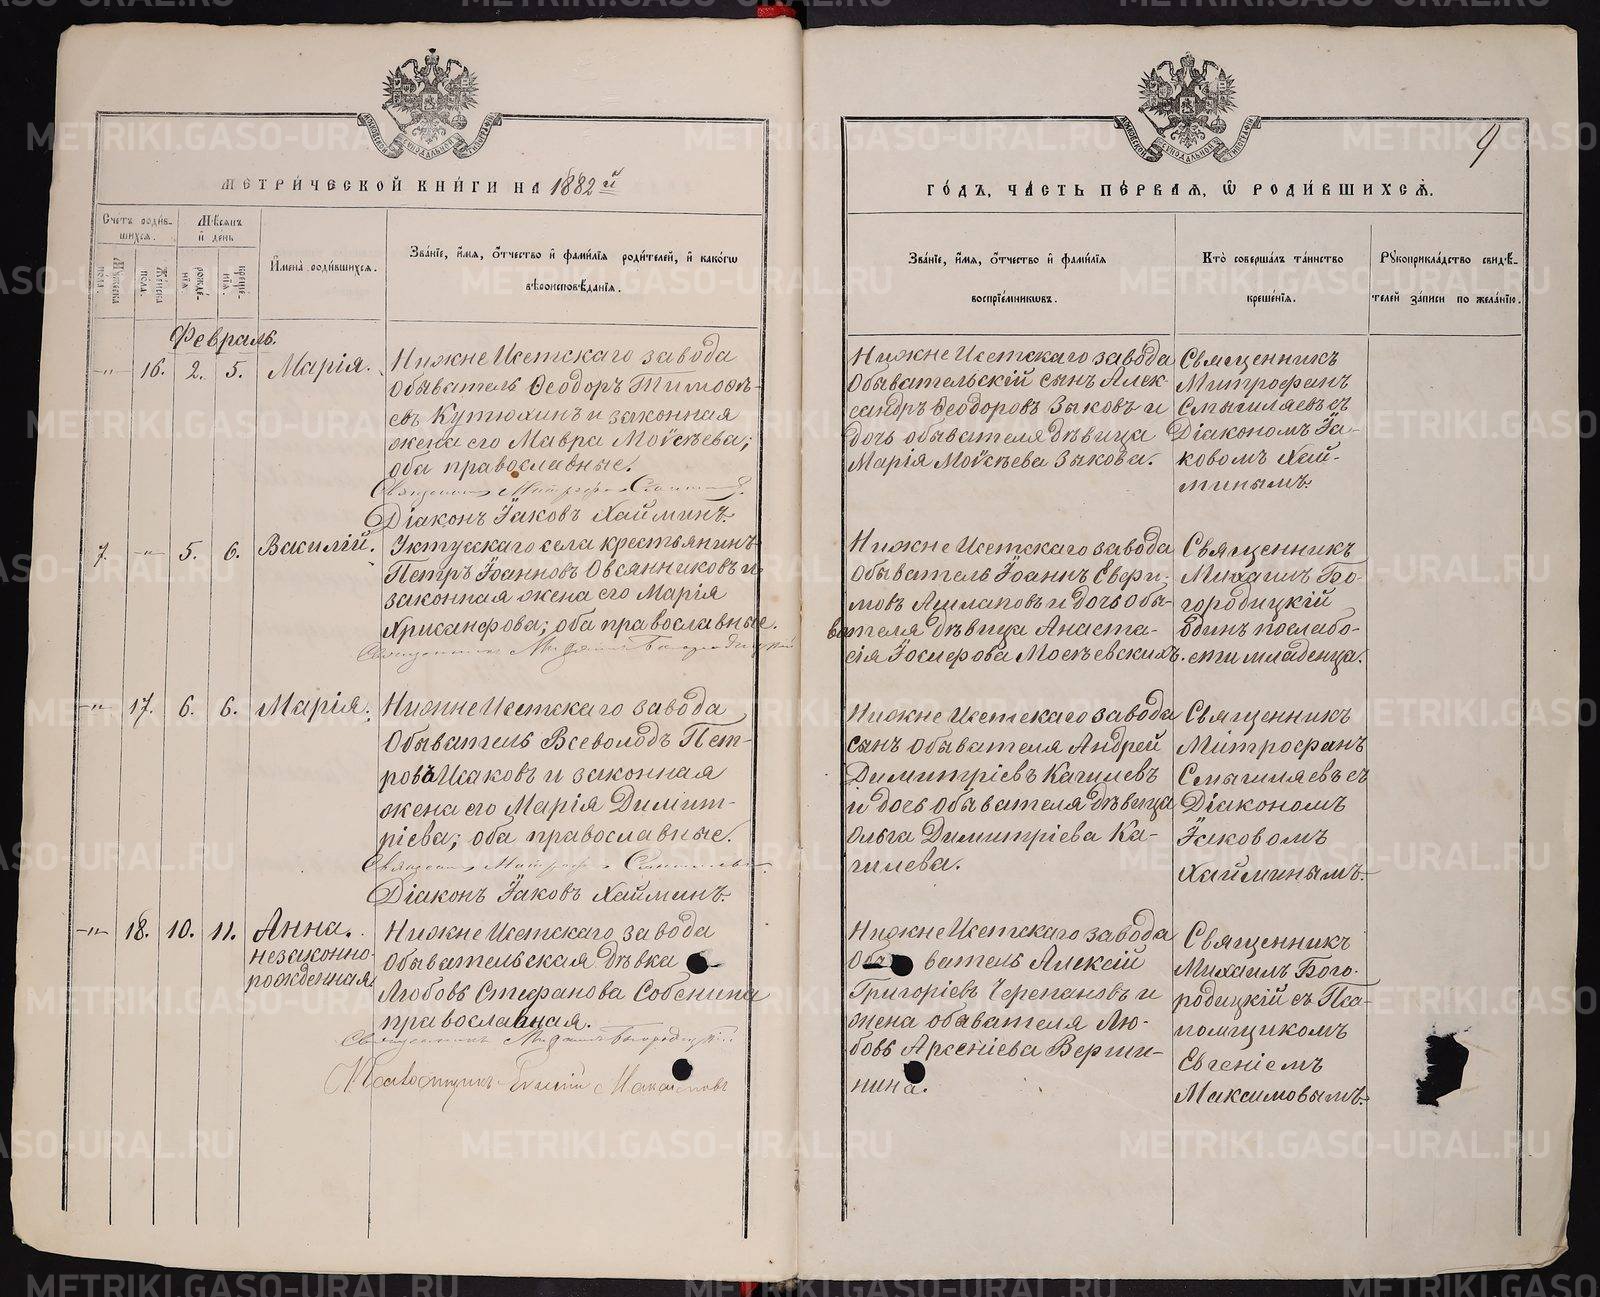 МЕТРИ́ЧЕСКОЙ КНИ́ГИ НА 1882й
Счетъ роди́в-
шихся.
Мѣсяцъ
и день
Имена̀ роди́вшихся.
Зва́нїе, и́мя, ѻ́тчество и фами́лїя роди́телей, и како́гѡ
вѣроисповѣ́данїя.
Мужеска
пола.
Женска
пола.
рожде-
нїя.
креще-
нїя.
Февраль.
-"- 16. 2. 5. Марія.
Нижне Исетскаго завода
обыватель Ѳеодоръ Тимоѳѣ-
евъ Кутюхинъ и законная
жена его Мавра Моѵсѣева;
оба православные.
Священникъ Митрофанъ
Діаконъ Іаковъ Хайминъ.
7. -"- 5. 6. Василій.
Уктусскаго села крестьянинъ
Петръ Іоанновъ Овсянниковъ и
законная жена его Марія
Хрисанфова; оба православные.
Священникъ Михаилъ Богородицкій
-"- 17. 6. 6. Марія.
Нижне Исетскаго завода
Обыватель Всеволодъ Пет-
ровъ Исаковъ и законная
жена его Марія Димит-
ріева; оба православные.
Священникъ Митрофанъ
Діаконъ Іаковъ Хайминъ.
-"- 18. 10. 11. Анна.
незаконно-
рожденная
Нижне Исетскаго завода
обывательская дѣвка
Любовь Стефанова Собенина
православная.
Священникъ Михаилъ Богородицкій
Псаломщикъ Евгеній Максимовъ
9
ГО́ДЪ, ЧА́СТЬ ПЕ́РВАЯ, Ѽ РОДИ́ВШИХСЯ.
Зва́нїе, и́мя, ѻ́тчество и фами́лїя
воспрїе́мникѡвъ.
Кто̀ соверша́лъ та́инство
креще́нїя.
Рꙋкоприкла́дство свидѣ́-
телей за́писи по жела́нїю.
Нижне Исетскаго завода
обывательскій сынъ Алек-
сандръ Ѳеодоровъ Зыковъ и
дочь обывателя дѣвица
Марія Моѵсѣева Зыкова.
Священникъ
Митрофанъ
Смышляевъ съ
Діакономъ Іа-
ковомъ Хай-
минымъ.
Нижне Исетскаго завода
обыватель Іоаннъ Евфи-
мовъ Ашлаповъ и дочь обы-
вателя дѣвица Анаста-
сія Іосифова Москвевскихъ.
Священникъ
Михаилъ Бо-
городицкій
одинъ по слабо-
сти младенца.
Нижне Исетскаго завода
сынъ обывателя Андрей
Димитріевъ Качилевъ
и дочь обывателя дѣвица
Ольга Димитріева Ка-
чилева.
Священникъ
Митрофанъ
Смышляевъ съ
Діакономъ
Іаковомъ
Хайминымъ.
Нижне Исетскаго завода
Обыватель Алексій
Григоріевъ Черепановъ и
жена обывателя Лю-
бовь Арсеніева Верши-
нина.
Священникъ
Михаилъ Бого-
родицкій съ Пса-
ломщикомъ
Евгеніемъ
Максимовымъ.
METRIKI.GASO-URAL.RU